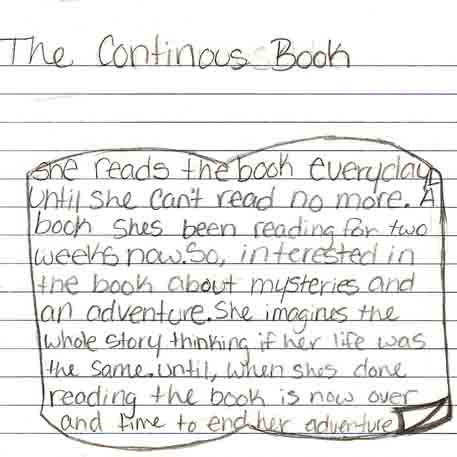 The Continous Book
She reads the book everyday
Until she can't read no more. A
book shes been reading for two
weeks now. So, interested in
the book about mysteries and
an adventure. She imagines the
whole story thinking if her life was
the same. Until, when shes done
reading the book is now over
and time to end her adventure